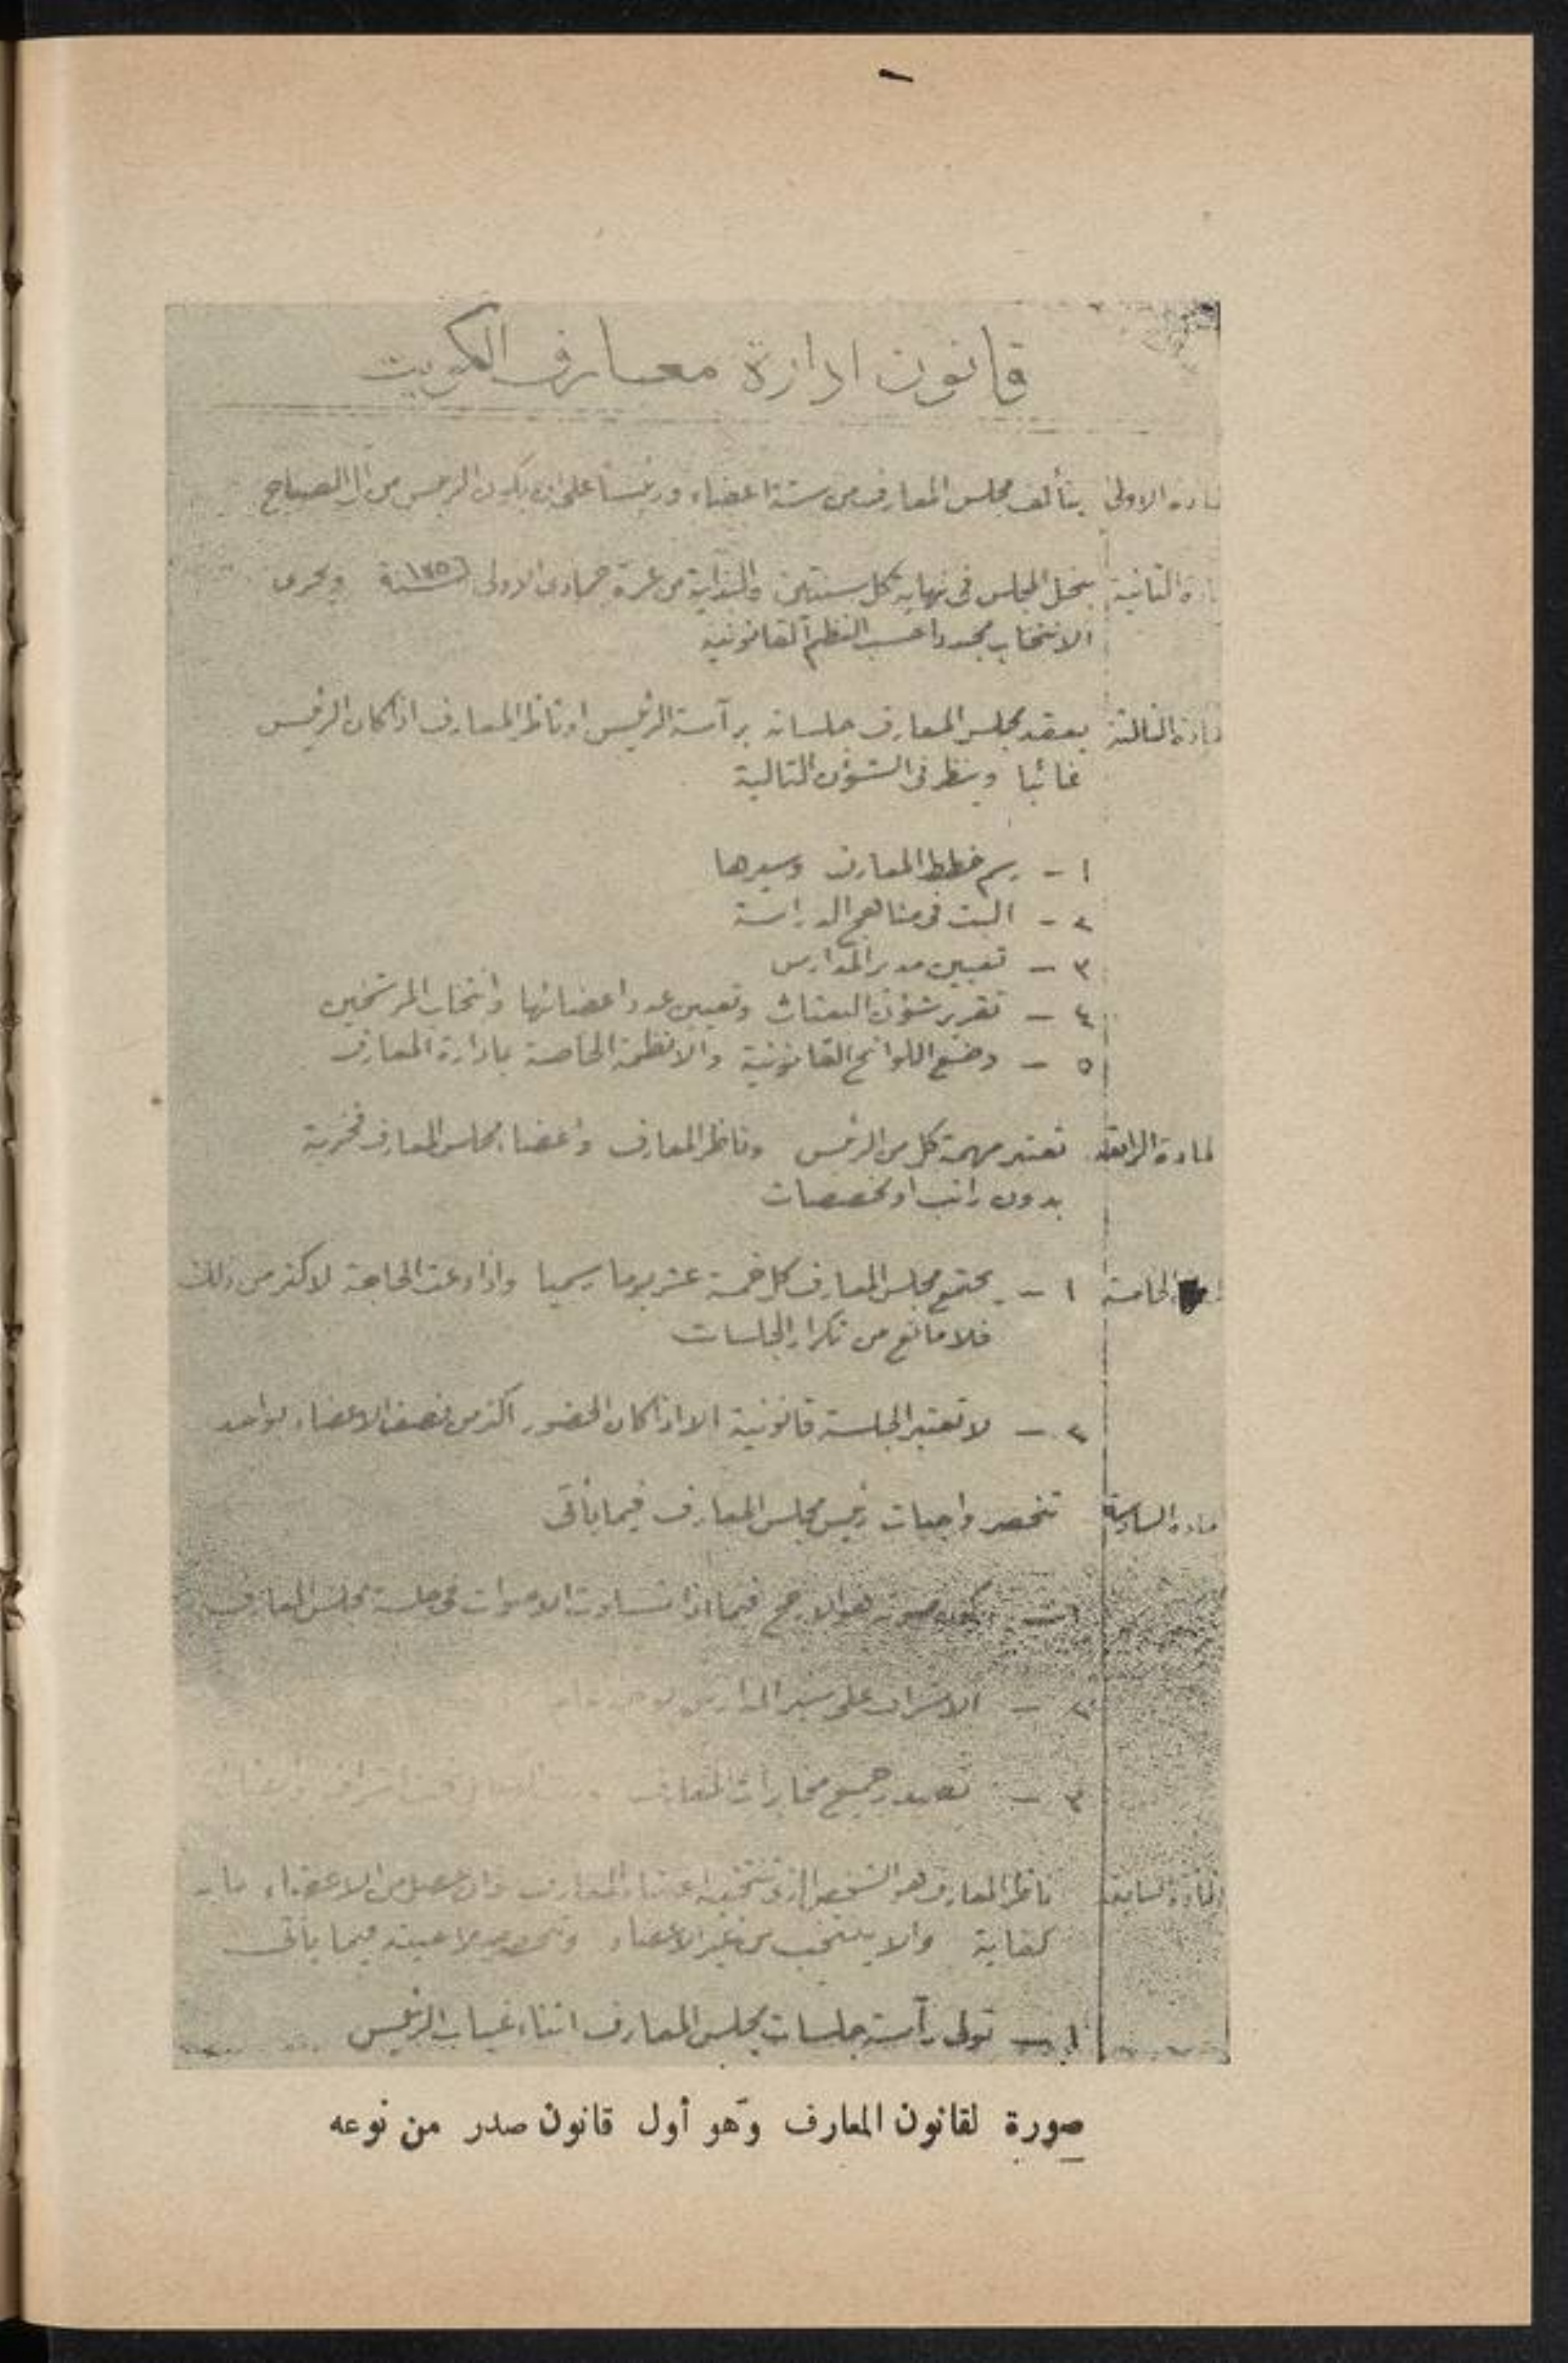 قانون ادارة معارف الكويت
مادة الاولى يتألف مجلس المعارف من ستة اعضاء ورئيسا على ان يكون الرئيس من آل الصباح
مادة الثانية ينحل المجلس فى نهاية كل سنتين والبداية من غرة جمادى الاولى سنة ويجرى
الانتخاب مجددا حسب النظم القانونية
مادة الثالثة يعقد مجلس المعارف جلساته برآسة الرئيس او ناظر المعارف اذا كان الرئيس
غائبا وينظر فى الشؤون التالية
١ - رسم خطط المعارف وسيرها
٢ - البت فى مناهج الدراسة
٣ - تعيين مدير المدارس
٤ - تقرير شؤون البعثات وتعيين عدد اعضائها وانتخاب المرشحين
٥ - وضع اللوائح القانونية والانظمة الخاصة بادارة المعارف
لمادة الرابعة تعتبر مهمة كل من الرئيس وناظر المعارف واعضاء مجلس المعارف فخرية
بدون راتب او مخصصات
الخامسة ١ - يجتمع مجلس المعارف كل خمسة عشر يوما رسميا واذا دعت الحاجة لاكثر من ذلك
فلا مانع من تكرار الجلسات
٢ - لا تعتبر الجلسة قانونية الا اذا كان الحضور اكثر من نصف الاعضاء بواحد
مادة السادسة تنحصر واجبات رئيس مجلس المعارف فيما يأتى
يكون صوته هو الارجح فيما اذا تساوت الاصوات فى جلسة مجلس المعارف
٢ - الاشراف على سير المدارس
٣ - تصدر جميع مخابرات المعارف
المادة السابعة ناظر المعارف هو الشخص الذى تنتخبه اعضاء المعارف من الاعضاء
كفاية والا ينتخب من غير الاعضاء فيما يأتى
١ - تولى رآسة جلسات مجلس المعارف اثناء غياب الرئيس
صورة لقانون المعارف وهو أول قانون صدر من نوعه